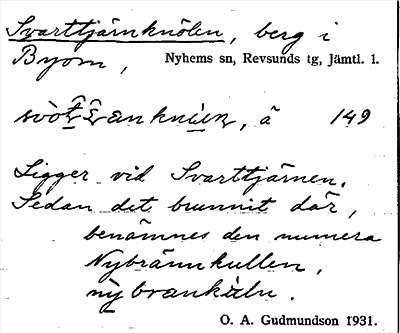 Svarttjärnknölen, berg i
Byom, Nyhems sn, Revsunds tg, Jämtl. l.
, å 149
Ligger vid Svarttjärnen.
Sedan det brunnit där,
benämnes den numera
Nybrännkullen,
O. A. Gudmundson 1931.